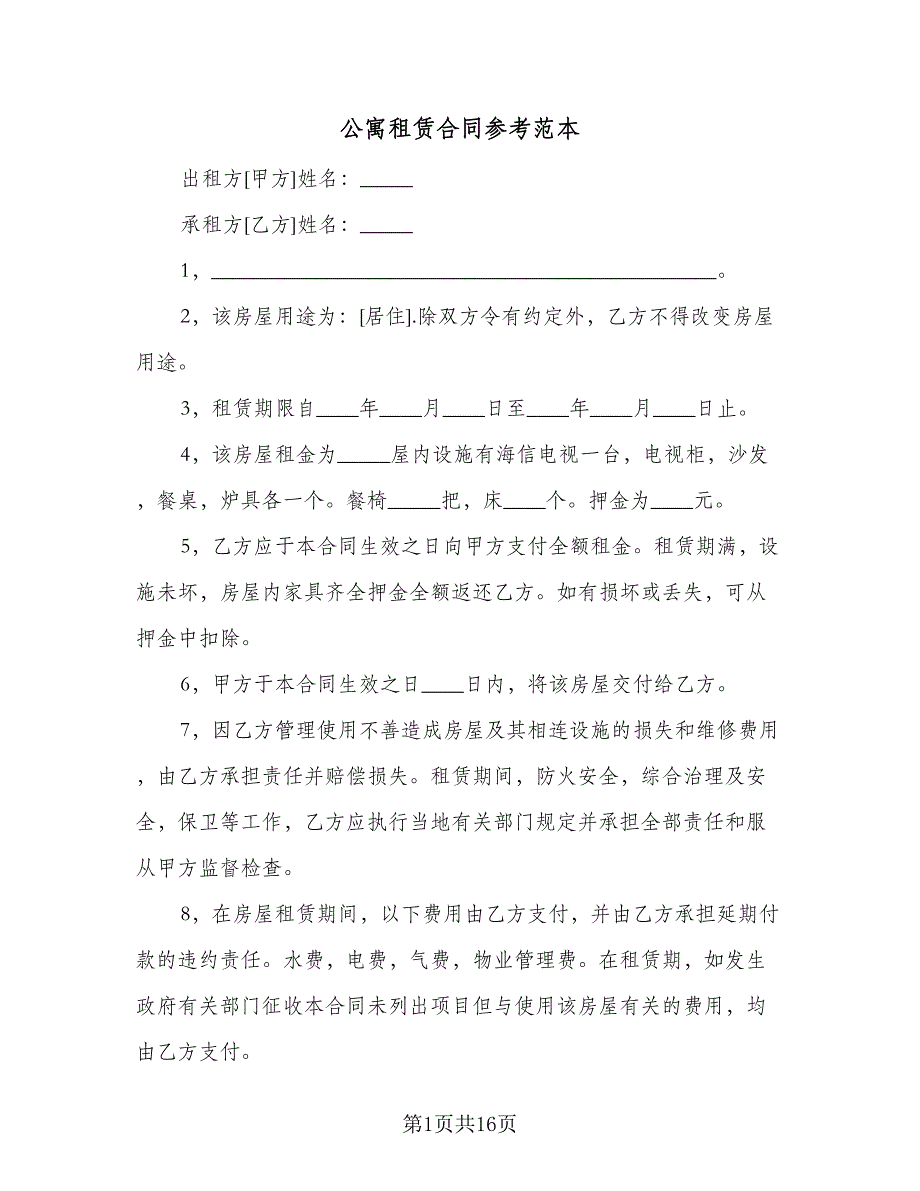 公寓租赁合同参考范本
出租方[甲方]姓名：_____
承租方[乙方]姓名：_____
1，________________________________________________。
2，该房屋用途为：[居住].除双方令有约定外，乙方不得改变房屋
用途。
3，租赁期限自____年____月____日至____年____月____日止。
4，该房屋租金为_____屋内设施有海信电视一台，电视柜，沙发
，餐桌，炉具各一个。餐椅_____把，床____个。押金为____元。
5，乙方应于本合同生效之日向甲方支付全额租金。租赁期满，设
施未坏，房屋内家具齐全押金全额返还乙方。如有损坏或丢失，可从
押金中扣除。
6，甲方于本合同生效之日____日内，将该房屋交付给乙方。
7，因乙方管理使用不善造成房屋及其相连设施的损失和维修费用
，由乙方承担责任并赔偿损失。租赁期间，防火安全，综合治理及安
全，保卫等工作，乙方应执行当地有关部门规定并承担全部责任和服
从甲方监督检查。
8，在房屋租赁期间，以下费用由乙方支付，并由乙方承担延期付
款的违约责任。水费，电费，气费，物业管理费。在租赁期，如发生
政府有关部门征收本合同未列出项目但与使用该房屋有关的费用，均
由乙方支付。
第1页共16页